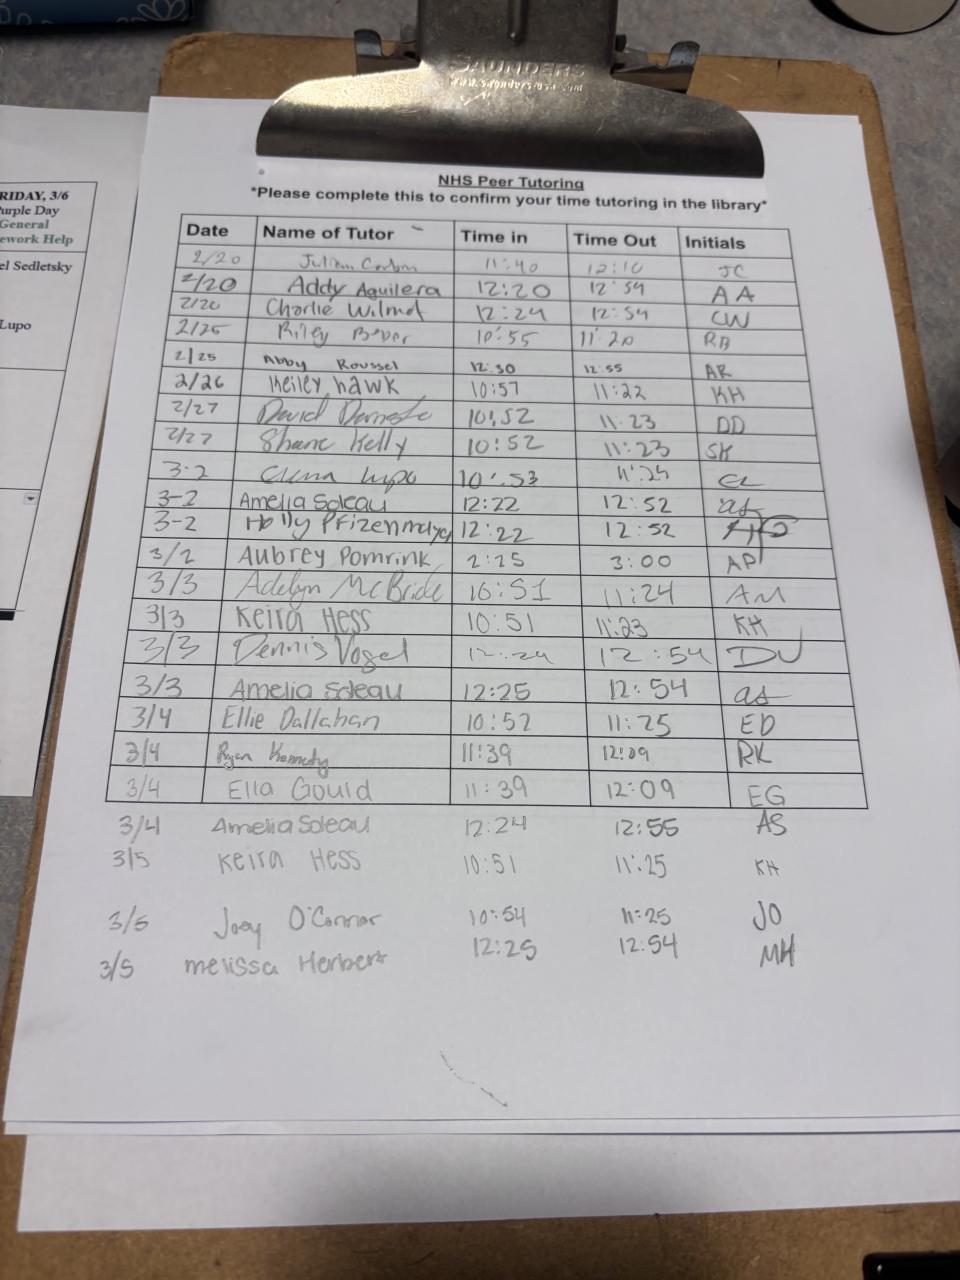 SAUNDERS
www.saunders-usa.com
RIDAY, 3/6
urple Day
General
ework Help
el Sedletsky
Lupo
NHS Peer Tutoring
*Please complete this to confirm your time tutoring in the library*
Date Name of Tutor Time in Time Out Initials
2/20 11:40 12:10 JC
2/20 Addy Aguilera 12:20 12:54 AA
2/20 Charlie Wilmot 12:24 12:54 CW
2/25 Riley 10:55 11:20 RB
2/25 Abby Roussel 12:30 12:55 AR
2/26 Keiley hawk 10:57 11:22 KH
2/27 David 10:52 11:23 DD
2/27 Shane Kelly 10:52 11:23 SK
3-2 Lupo 10:53 11:25
3-2 Amelia Soleau 12:22 12:52 as
3-2 Holly Pfizenmayer 12:22 12:52 HP
3/2 Aubrey Pomrink 2:25 3:00 AP
3/3 Adelyn McBride 10:51 11:24 AM
3/3 Keira Hess 10:51 11:23 KH
3/3 Dennis Vogel 12:24 12:54 DV
3/3 Amelia Soleau 12:25 12:54 as
3/4 Ellie Dallahan 10:52 11:25 ED
3/4 Ryan Kennedy 11:39 12:09 RK
3/4 Ella Gould 11:39 12:09 EG
3/4 Amelia Soleau 12:24 12:55 AS
3/5 Keira Hess 10:51 11:25 KH
3/5 Joey O'Connor 10:54 11:25 JO
3/5 melissa Herbert 12:25 12:54 MH